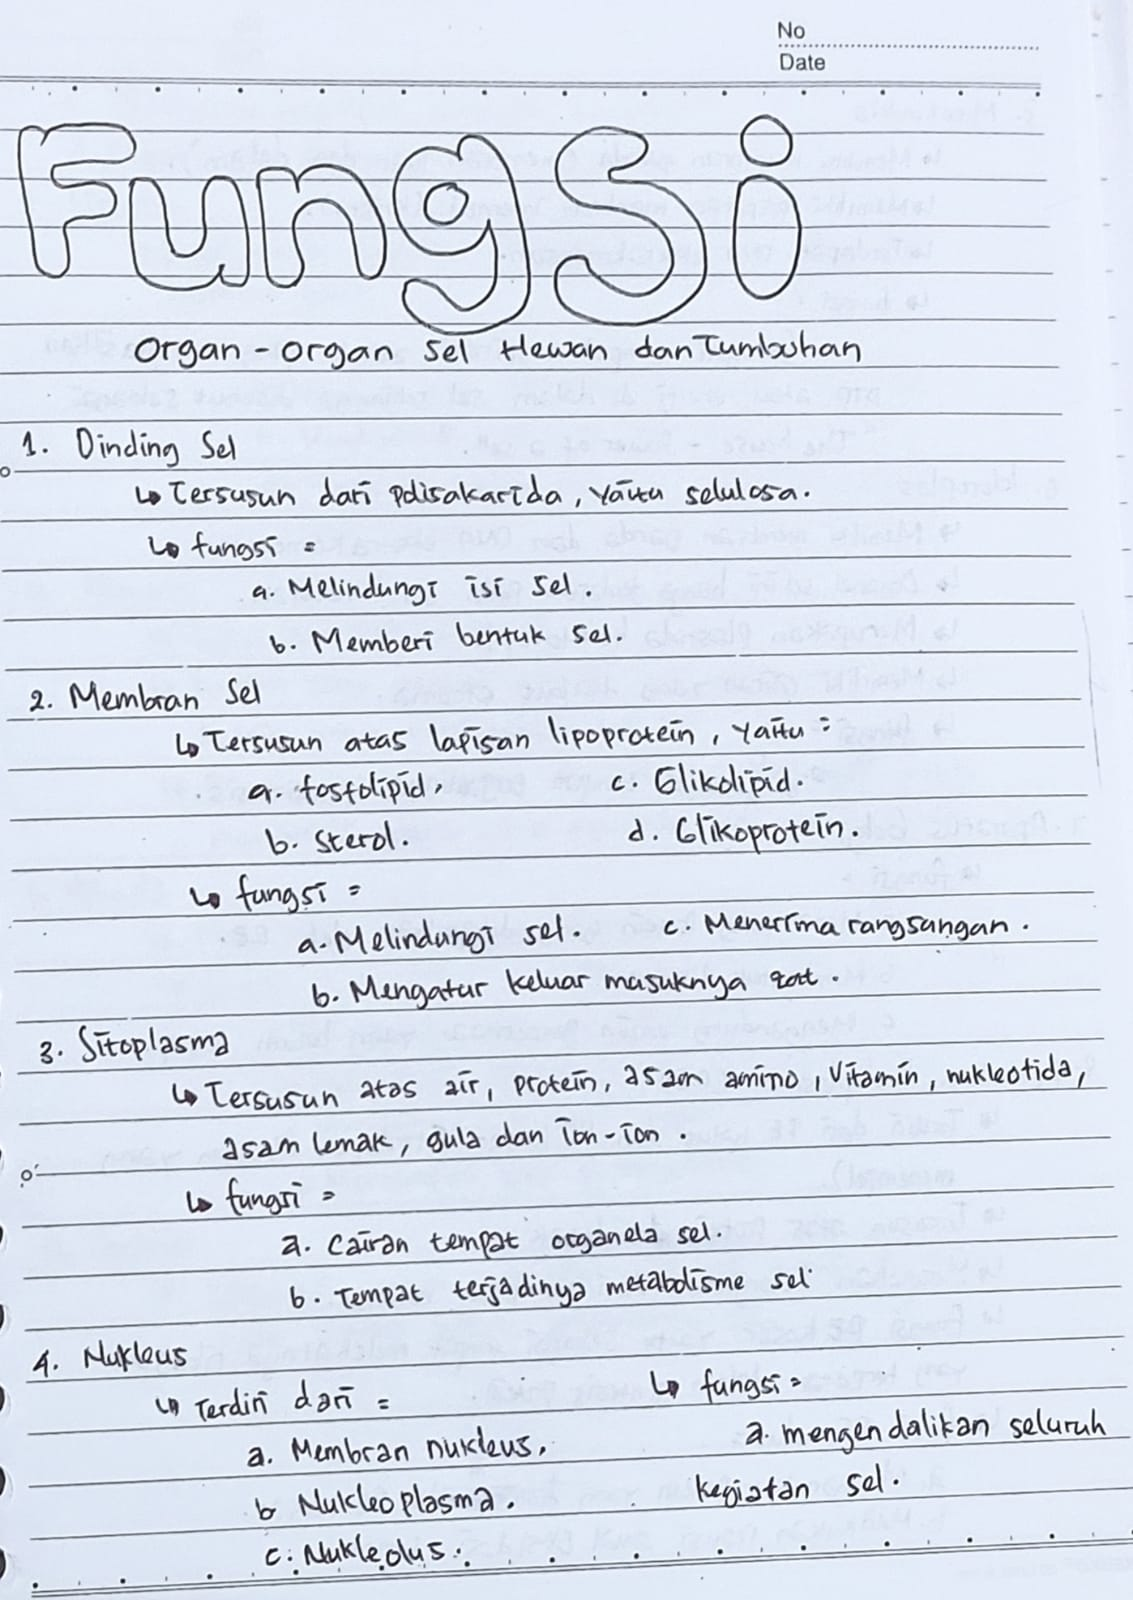 No
Date
Fungsi
Organ-organ Sel Hewan dan Tumbuhan
1. Dinding Sel
↳ Tersusun dari polisakarida, yaitu selulosa.
↳ fungsi =
a. Melindungi isi sel.
b. Memberi bentuk sel.
2. Membran Sel
↳ Tersusun atas lapisan lipoprotein, yaitu =
a. fosfolipid. c. Glikolipid.
b. Sterol. d. Glikoprotein.
↳ fungsi =
a. Melindungi sel. c. Menerima rangsangan.
b. Mengatur keluar masuknya zat.
3. Sitoplasma
↳ Tersusun atas air, protein, asam amino, Vitamin, nukleotida,
asam lemak, gula dan ion-ion.
↳ fungsi =
a. Cairan tempat organela sel.
b. Tempat terjadinya metabolisme sel.
4. Nukleus
↳ Terdiri dari = ↳ fungsi =
a. Membran nukleus. a. mengendalikan seluruh
b Nukleoplasma. kegiatan sel.
c. Nukleolus.